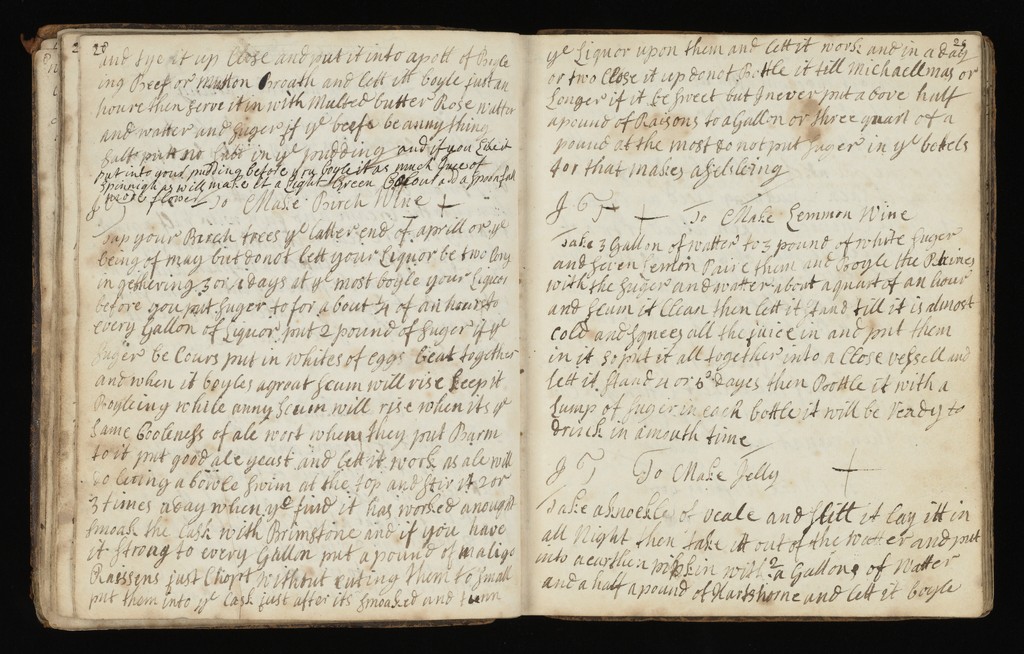 28
and tye it up Close and put it into a pott of Boyle
ing Beef or Mutton broath and lett itt boyle just an
houre then serve it in with Multed butter Rose watter
and watter and suger if ye beefe be anny thing
salt putt no salt in ye pudding and if you like it
put into your pudding before you boyle it as much Juce of
Spinnigh as will make it a Light Green Colour and a spoonfull
more flower
To Make Birch Wine +
Tap your Birch trees ye latter end of aprill or ye
being of may but donot lett your Liquor be two long
in gethering 3 or 4 days at ye most boyle your Liquor
before you put suger to for about ¼ of an houre to
every Gallon of Liquor put 2 pound of suger if ye
suger be Cours put in whites of eggs beat together
and when it boyles agreat scum will rise keep it
Boyleing while anny scum will rise when its ye
same Cooleness of ale wort when they put Barm
to it put good ale yeast and lett it work as ale will
do leting a bowle swim at the top and stir it 2 or
3 times a day when ye find it has worked anought
smoak the Cask with Brimstone and if you have
it strong to every Gallon put a pound of maliga
Raissens just Chopt without cuting them to small
put them into ye Cask just after its smoaked and tunn
29
ye Liquor upon them and lett it work and in a day
or two Close it up donot Bottle it till Michaellmas or
Longer if it be sweet but I never put above half
a pound of Raisons to a Gallon or three quart of a
pound at the most do not put suger in ye bottels
for that makes a
J G T + To Make Lemmon Wine
Take 3 Gallon of watter to 3 pound of white suger
and seven Lemon Paire them and Boyle the Paireins
with the suger and watter about a quart of an hour
and scum it Clean then lett it stand till it is almost
Cold and squees all the juice in and put them
in it so put it all together into a Close vessell and
lett it stand 4 or 5 dayes then Bottle it with a
Lump of suger in each bottle it will be ready to
drink in a mouth time
J T To Make Jelly +
Take a knockle of veale and slitt it lay itt in
all Night then take itt out of the watter and put
into a earthen with 2 a Gallons of watter
and a half a pound of Hartshorne and lett it boyle